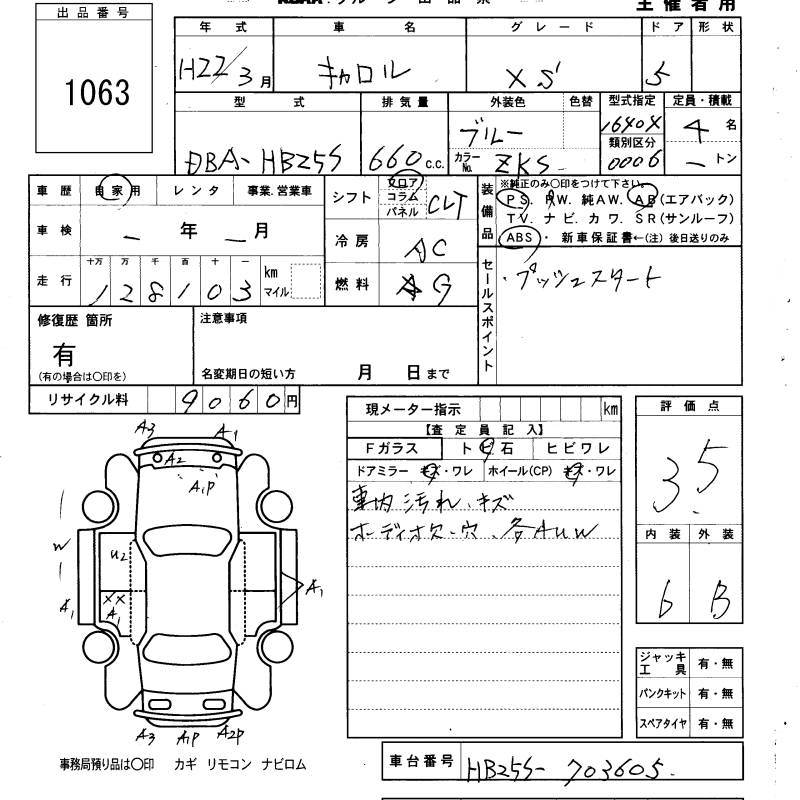 主催者用
出品番号
1063
年式 車名 グレード ドア 形状
H22/3月 キャロル XS 5
型式 排気量 外装色 色替 型式指定 定員・積載
DBA-HB25S 660c.c. ブルー 16404 4名
カラーNo. ZKS 類別区分 0006 ートン
車歴 自家用 レンタ 事業.営業車
シフト フロア コラム パネル CLT
装備品 ※純正のみ〇印をつけて下さい。
PS. PW. 純AW. AB(エアバック)
TV. ナビ. カワ. SR(サンルーフ)
ABS・ 新車保証書←(注) 後日送りのみ
車検 ー年ー月
冷房 AC
走行 十万 万 千 百 十 一
128103 km マイル
燃料 G
セールスポイント ・プッシュスタート
修復歴 箇所
有
(有の場合は〇印を)
注意事項
名変期日の短い方 月 日まで
リサイクル料 9060円
現メーター指示 km
【査定員記入】
Fガラス トビ石 ヒビワレ
ドアミラー キズ・ワレ ホイール(CP) キズ・ワレ
車内汚れ・キズ
オーディオ欠・穴、各AUW
評価点
3.5
内装 外装
6 B
A3 A1
A2
A1P
W U2
XX
A1 A1 A1
A3 A1P A2P
ジャッキ工具 有・無
パンクキット 有・無
スペアタイヤ 有・無
事務局預り品は〇印 カギ リモコン ナビロム
車台番号 HB25S-703605